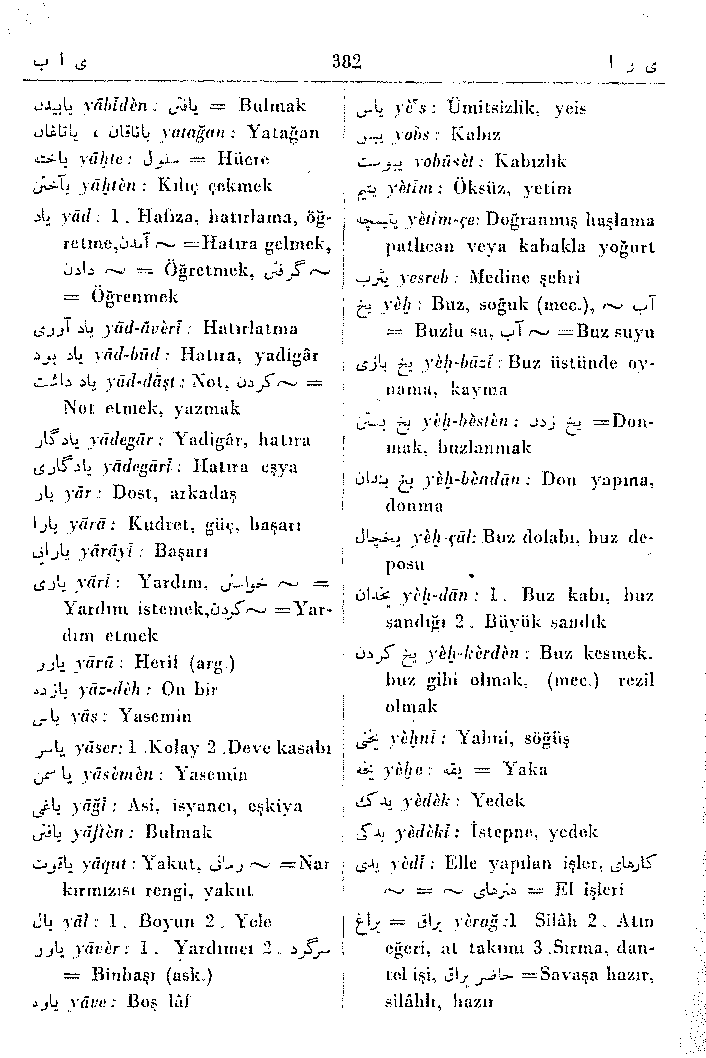 ی ا ب 382 ی ر ا
یابیدن yābīdèn : یافتن = Bulmak
یاتاغان ، یاتاقان yatağan : Yatağan
یاخته yāḫte : سلول = Hücre
یاختن yāḫtèn : Kılıç çekmek
یاد yād : 1 . Hafıza, hatırlama, öğ-
retme, آمدن ~ =Hatıra gelmek,
دادن ~ = Öğretmek, گرفتن ~
= Öğrenmek
یاد آوری yād-āverī : Hatırlatma
یاد بود yād-būd : Hatıra, yadigâr
یاد داشت yād-dāşt : Not, کردن ~ =
Not etmek, yazmak
یادگار yādegār : Yadigâr, hatıra
یادگاری yādegārī : Hatıra eşya
یار yār : Dost, arkadaş
یارا yārā : Kudret, güç, başarı
یارایی yārāyī : Başarı
یاری yārī : Yardım, خواستن ~ =
Yardım istemek, کردن ~ =Yar-
dım etmek
یارو yārū : Herif (arg.)
یازده yāz-dèh : On bir
یاس yās : Yasemin
یاسر yāser: 1 .Kolay 2 .Deve kasabı
یاسمن yāsèmèn : Yasemin
یاغی yāğī : Asi, isyancı, eşkiya
یافتن yāftèn : Bulmak
یاقوت yāqut : Yakut, رمانی ~ =Nar
kırmızısı rengi, yakut
یال yāl : 1 . Boyun 2 . Yele
یاور yāvèr : 1 . Yardımcı 2 . سرگرد
= Binbaşı (ask.)
یاوه yāve : Boş lâf
یأس yè's : Ümitsizlik, yeis
یبس yobs : Kabız
یبوست yobūsèt : Kabızlık
یتیم yètīm : Öksüz, yetim
یتیمچه yètīm-çe: Doğranmış haşlama
patlıcan veya kabakla yoğurt
یثرب yesreb : Medine şehri
یخ yèḫ : Buz, soğuk (mec.), ~ آب
= Buzlu su, آب ~ =Buz suyu
یخ بازی yèḫ-bāzī : Buz üstünde oy-
nama, kayma
یخ بستن yèḫ-bèstèn : یخ زدن =Don-
mak, buzlanmak
یخ بندان yèḫ-bèndān : Don yapma,
donma
یخچال yèḫ-çāl: Buz dolabı, buz de-
posu
یخدان yèḫ-dān : 1. Buz kabı, buz
sandığı 2 . Büyük sandık
یخ کردن yèḫ-kèrdèn : Buz kesmek.
buz gibi olmak, (mec.) rezil
olmak
یخنی yèḫnī : Yahni, söğüş
یخه yèḫe : یقه = Yaka
یدک yèdèk : Yedek
یدکی yèdèkī : İstepne, yedek
یدی yèdī : Elle yapılan işler, کارهای
~ = ~ هنرهای = El işleri
یراغ = یراق yèrağ :1 Silâh 2 . Atın
eğeri, at takımı 3 .Sırma, dan-
tel işi, حاضر یراق =Savaşa hazır,
silâhlı, hazır